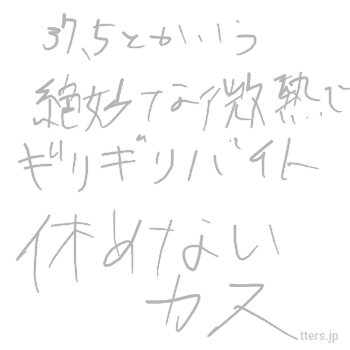 37、5とかいう
絶妙な微熱で
ギリギリバイト
休めない
カス
tters.jp